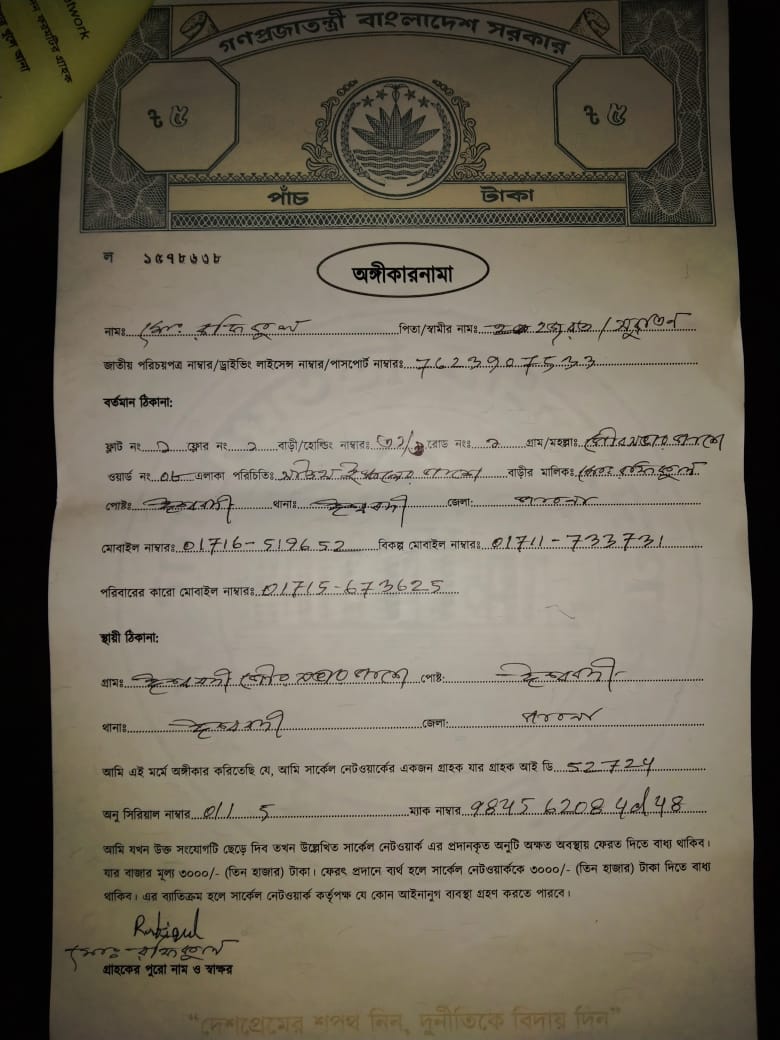 twork
গণপ্রজাতন্ত্রী বাংলাদেশ সরকার
৳ ৫ ৳ ৫
পাঁচ টাকা
ল ১৫৭৮৬৩৮
অঙ্গীকারনামা
নামঃ মোঃ রফিকুল পিতা/স্বামীর নামঃ
জাতীয় পরিচয়পত্র নাম্বার/ড্রাইভিং লাইসেন্স নাম্বার/পাসপোর্ট নাম্বারঃ 7623907533
বর্তমান ঠিকানা:
ফ্লাট নং ফ্লোর নং বাড়ী/হোল্ডিং নাম্বারঃ রোড নংঃ গ্রাম/মহল্লাঃ
ওয়ার্ড নং এলাকা পরিচিতিঃ বাড়ীর মালিকঃ মোঃ রফিকুল
পোষ্টঃ ঈশ্বরদী থানাঃ ঈশ্বরদী জেলা: পাবনা
মোবাইল নাম্বারঃ 01716-519652 বিকল্প মোবাইল নাম্বারঃ 01711-733731
পরিবারের কারো মোবাইল নাম্বারঃ 01715-673625
স্থায়ী ঠিকানা:
গ্রামঃ ঈশ্বরদী পোষ্ট: ঈশ্বরদী
থানাঃ ঈশ্বরদী জেলা: পাবনা
আমি এই মর্মে অঙ্গীকার করিতেছি যে, আমি সার্কেল নেটওয়ার্কের একজন গ্রাহক যার গ্রাহক আই ডি 52724
অনু সিরিয়াল নাম্বার 0/1 5 ম্যাক নাম্বার 9845 6208 4d 48
আমি যখন উক্ত সংযোগটি ছেড়ে দিব তখন উল্লেখিত সার্কেল নেটওয়ার্ক এর প্রদানকৃত অনুটি অক্ষত অবস্থায় ফেরত দিতে বাধ্য থাকিব।
যার বাজার মূল্য ৩০০০/- (তিন হাজার) টাকা। ফেরৎ প্রদানে ব্যর্থ হলে সার্কেল নেটওয়ার্ককে ৩০০০/- (তিন হাজার) টাকা দিতে বাধ্য
থাকিব। এর ব্যতিক্রম হলে সার্কেল নেটওয়ার্ক কর্তৃপক্ষ যে কোন আইনানুগ ব্যবস্থা গ্রহণ করতে পারবে।
Rafiqul
মোঃ রফিকুল
গ্রাহকের পুরো নাম ও স্বাক্ষর
"দেশপ্রেমের শপথ নিন, দুর্নীতিকে বিদায় দিন"